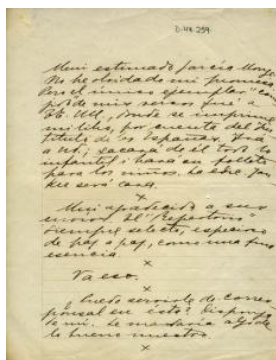 D-48.259
Mui estimado García Monge:
No he olvidado mi promesa.
Pero el único ejemplar "com
pleto" de mis versos fué a
EE. UU., donde se imprime
mi libro, por cuenta del Ins
tituto de las Españas.
a Ud; sacará de él todo lo
infantil i hará un folleto
para los niños. La edic.
será cara.
x
Mui agradecido a sus
envíos. El "Repertorio"
siempre selecto, especioso
de pag a pag, como una fina
esencia.
x
Va eso.
x
Puedo servirle de corres
ponsal en esto? Disponga
de mí. Le mandaría algo de
lo bueno nuestro.
x